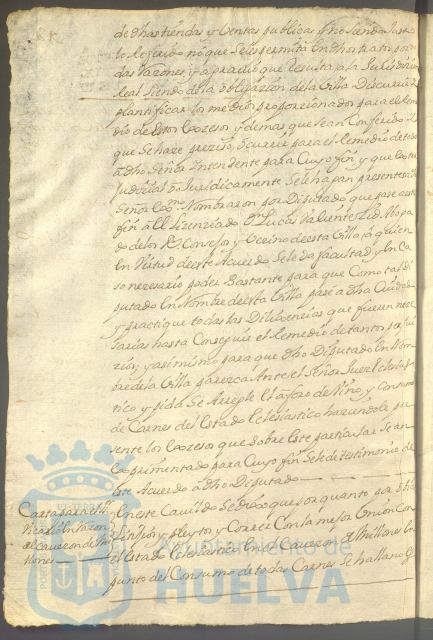 de dhas tiendas y Ventas publicas Pno siendo Justo
lo referido no que se les permita En dhos tratos por
das razones, y a preciso que resulta a la Jurisdicion
real siendo de la obligazion de la Villa Discurrir y
plantificar los medios proporcionados para el reme
dio de estos Excesos y demas que sean Conferido
que se haze preziso, ocurrir para el remedio de todo
a dho Señor Intendente para Cuyo fin, y que Extra
Judizial o Juridicamente Se le hagan presentes a dho
Señor Nombraron por Diputado que pase a este
fin al Lizenziado Dn Lucas Valiente Aboga
do de los Rs Consejos y Vezino de esta Villa, a quien
En Virtud de este Acuerdo Se le da facultad y En Ca
so necesario poder Bastante para que Como tal Di
putado En Nombre de esta Villa pase a dha Ciudad
y practique todas las Dilixenzias que fueren nece
sarias hasta Conseguir el remedio de tantos perjui
zios; y asimismo para que dho Diputado En Nom
bre de la Villa parezca Ante el Señor Juez Eclesias
tico y pida Se Arregle el aforo de Vino, y Consumo
de Carnes del Estado Eclesiastico haziendole pre
sente los Excesos que Sobre Este particular Se an
Experimentado para Cuyo fin Se le de testimonio de
Este Acuerdo a dho Diputado
Carta para el Sr
Vicario En razon
del Cavezon de Mi
llones
En este Cavildo Se Dixo que por quanto por
pleytos y Correr Con la mejor Union Con
el Estado Eclesiastico En el Cavezon de Millones En
punto del Consumo de todas Carnes Se hallano
Ayuntamiento de
HUELVA